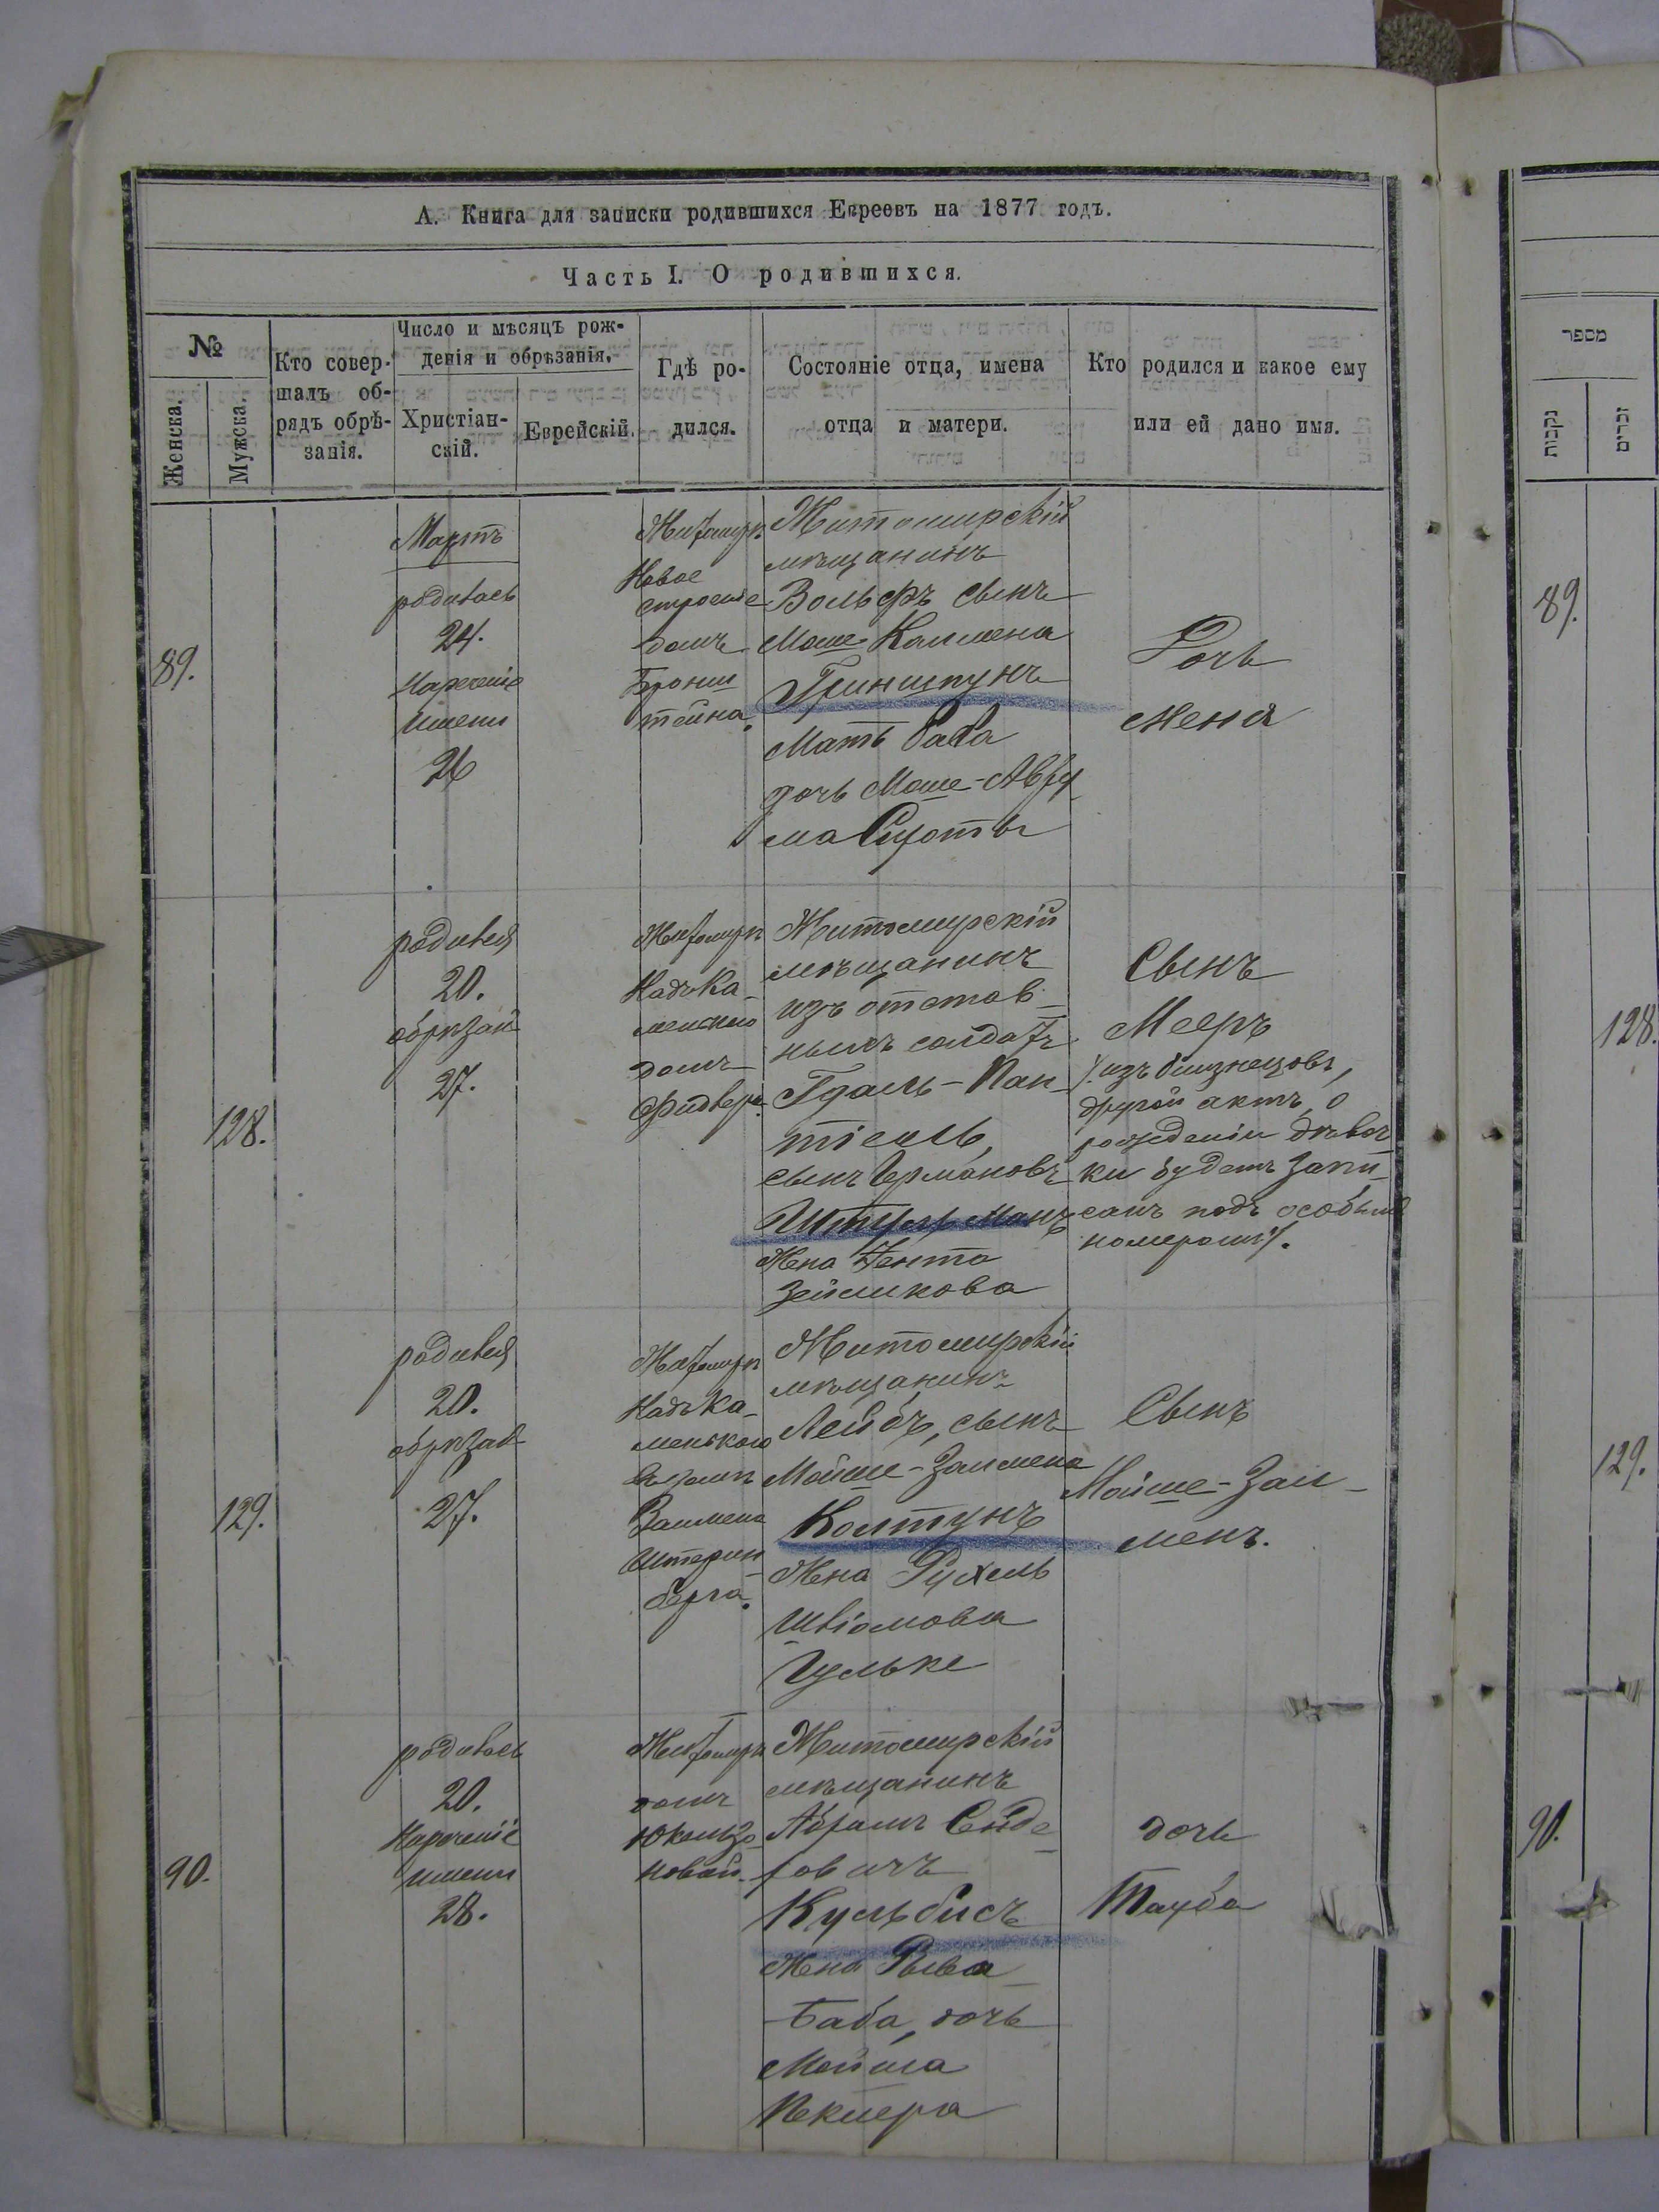 А. Книга для записки родившихся Евреевъ на 1877 годъ.
Часть I. О родившихся.
№
Женска.
Мужска.
Кто совер-
шалъ об-
рядъ обрѣ-
занія.
Число и мѣсяцъ рож-
денія и обрѣзанія.
Христіан-
скій.
Еврейскій.
Гдѣ ро-
дился.
Состояніе отца, имена
отца и матери.
Кто родился и какое ему
или ей дано имя.
89.
Мартъ
родилась
24.
Нареченіе
имени
26
Житомиръ
Новое
строеніе
домъ
Бронш
тейна.
Житомирскій
мѣщанинъ
Вольфъ сынъ
Моше Калмена
Гриншпунъ
Мать Баба
дочь Моше-Авру
ма Сироты
Дочь
Меня
128.
родился
20.
обрѣзан
27.
Житомиръ
Надъ Ка-
менкою
домъ
Житомирскій
мѣщанинъ
изъ отстав-
ныхъ солдатъ
Гдаль-Пан-
тіель,
сынъ Германовъ
Штульманъ
Жена Ента
Зейликова
Сынъ
Мееръ
/:изъ близнецовъ,
другой актъ о
рожденіи дѣвоч
ки будетъ запи-
санъ подъ особымъ
номеромъ/.
129.
родился
20.
обрѣзан
27.
Житомиръ
Надъ Ка-
менькою
въ домѣ
Залмена
Штерин
берга.
Житомирскій
мѣщанинъ
Лейбъ, сынъ
Мойше-Залмена
Колтунъ
Жена Рухель
Шліомова
Цульке
Сынъ
Мойше-Зал-
менъ.
90.
родилась
20.
Нареченіе
имени
28.
Житомиръ
домъ
новой.
Житомирскій
мѣщанинъ
Абрамъ Сенде-
ровичъ
Кульбисъ
Жена Рыва-
Баба, дочь
Мойша
Пеккера
дочь
Тауба
מספר
נקבות
זכרים
89.
128.
129.
90.